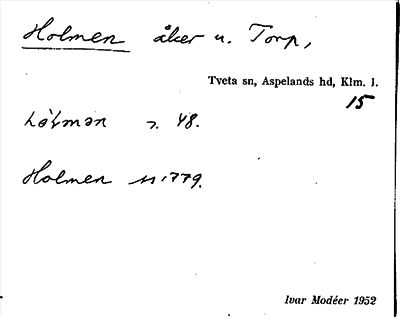 Holmen åker u. Torp,
Tveta sn, Aspelands hd, Klm. l.
15
48.
Holmen 1779.
Ivar Modéer 1952